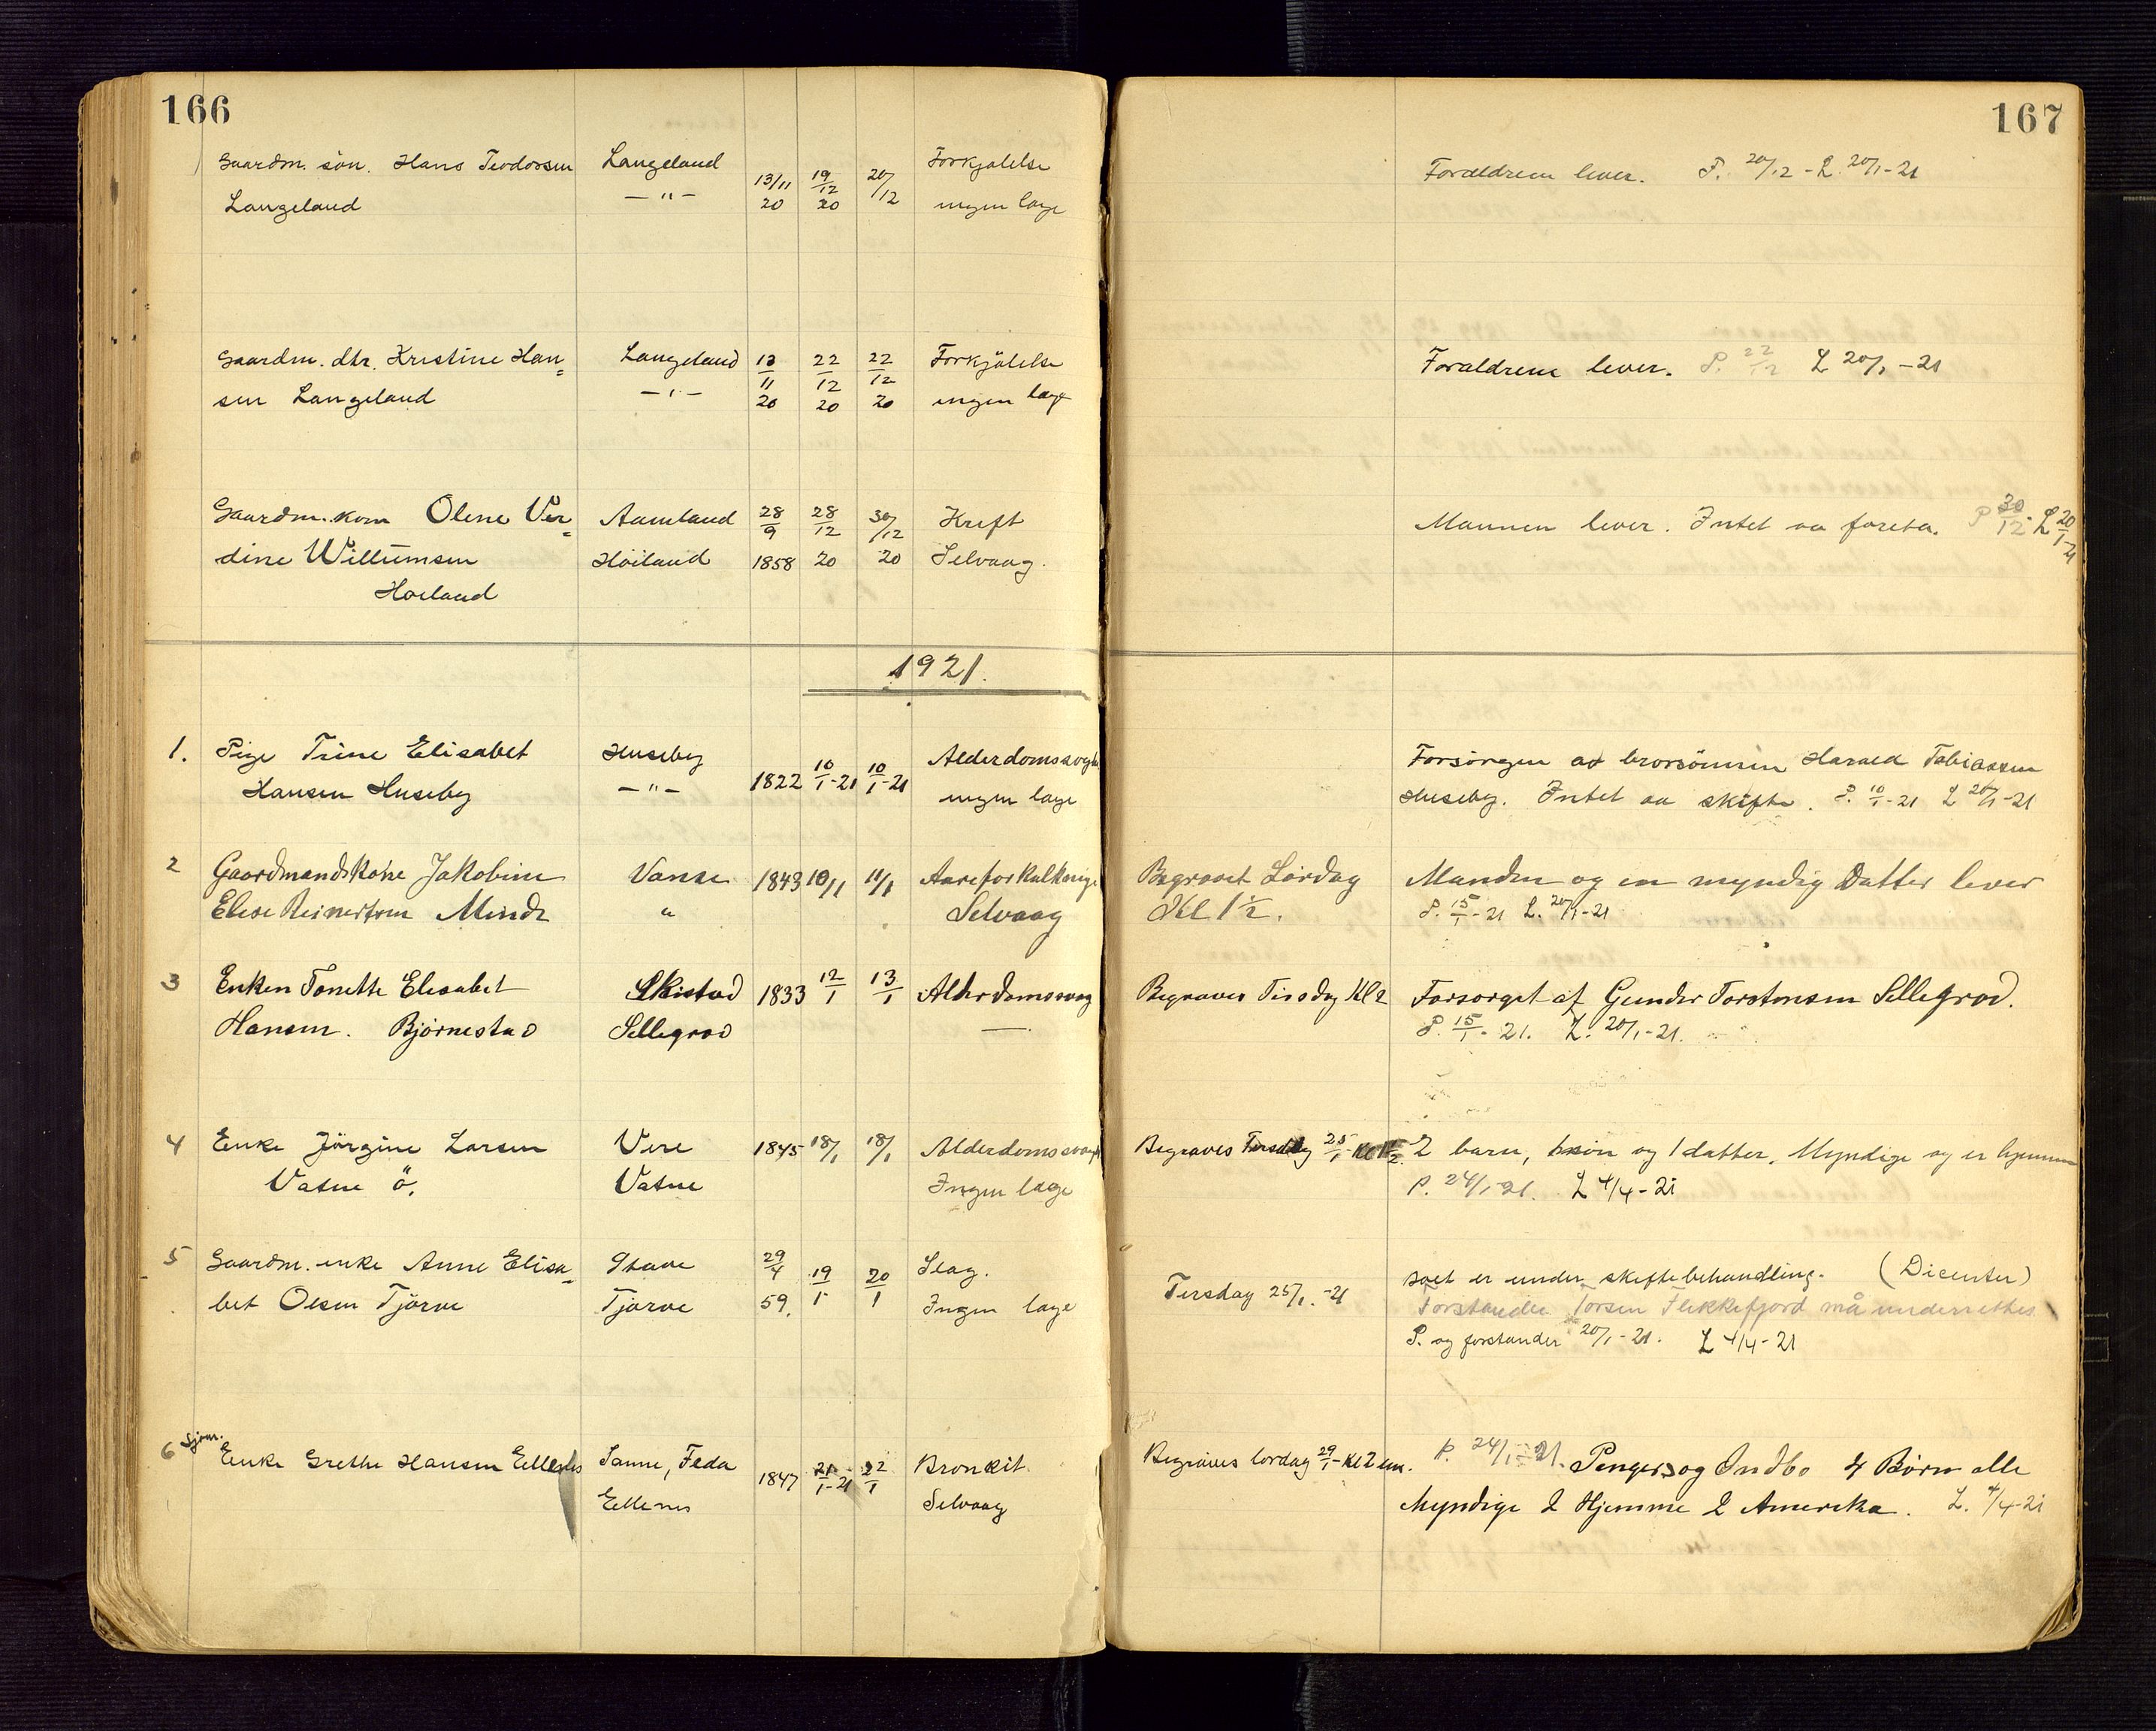 166
Gaardm. sön. Hans Teodorsen Langeland 13/11 19/12 20/12 Forkjølelse
Langeland — " — 20 20 ingen læge
Gaardm. dtr. Kristine Han= Langeland 12/11 22/12 22/12 Forkjölelse
sen Langeland — " — 20 20 20 ingen læge
Gaardm. kone Olene Ver= Aamland 28/9 28/12 30/12 Kreft
dine Willumsen Höiland 1858 20 20 Selvaag.
Höiland
1921.
1. Pige Trine Elisabet Huseby 1822 10/1-21 10/1-21 Alderdomssvagh.
Hansen Huseby — " — ingen læge
2 Gaardmandskone Jakobine Vanse 1843 10/1 11/1 Aareforkalkninge
Elise Reinertsen Minde " Selvaag
3 Enken Tonette Elisabet Skistad 1833 12/1 13/1 Alderdomssvag
Hansen. Bjørnestad Sellegrod —
4 Enke Jörgine Larsen Vere 1845 18/1 18/1 Alderdomssvagh
Vatne ö. Vatne Ingen læge
5 Gaardm. enke Anne Elisa= Stave 29/4 19/1 20/1 Slag.
bet Olsen Tjörve Tjörve 59. Ingen læge
6 Sjøm. Enke Grethe Hansen Ellenes Sanne, Feda 1847 21/1-21 22/1 Bronkit.
Ellenes Selvaag
167
Forældrene lever. P. 20/12 - L. 20/1-21
Forældrene lever. P. 22/12 L 20/1-21
Mannen lever. Intet aa foreta. P 30/12. L 20/1-21
Forsörgen av brorsönnen Harald Tobiassen
Huseby. Intet aa skifte. P. 10/1-21 L 20/1-21
Begravet Lördag Manden og en myndig Datter lever
Kl 1½. P. 15/1-21 L. 20/1-21
Begraves Tirsdag Kl 2 Forsorget af Gunder Torstensen Sellegrod.
P. 15/1-21. L. 20/1-21.
Begraves Tirsdag 25/1 Kl 2 barn, 1 sön og 1 datter. Myndige og er hjemme
P. 24/1-21. L 4/4-21
boet er under skiftebehandling. (Dicenter)
Tirsdag 25/1.-21 Forstander Torsen Flekkefjord må underrettes
P. og forstander 20/1-21. L 4/4-21
Begraves lördag 29/1 Kl 2 em. P. 24/1-21. Penger og Indbo 4 Børn alle
Myndige 2 Hjemme 2 Amerika. L. 4/4-21